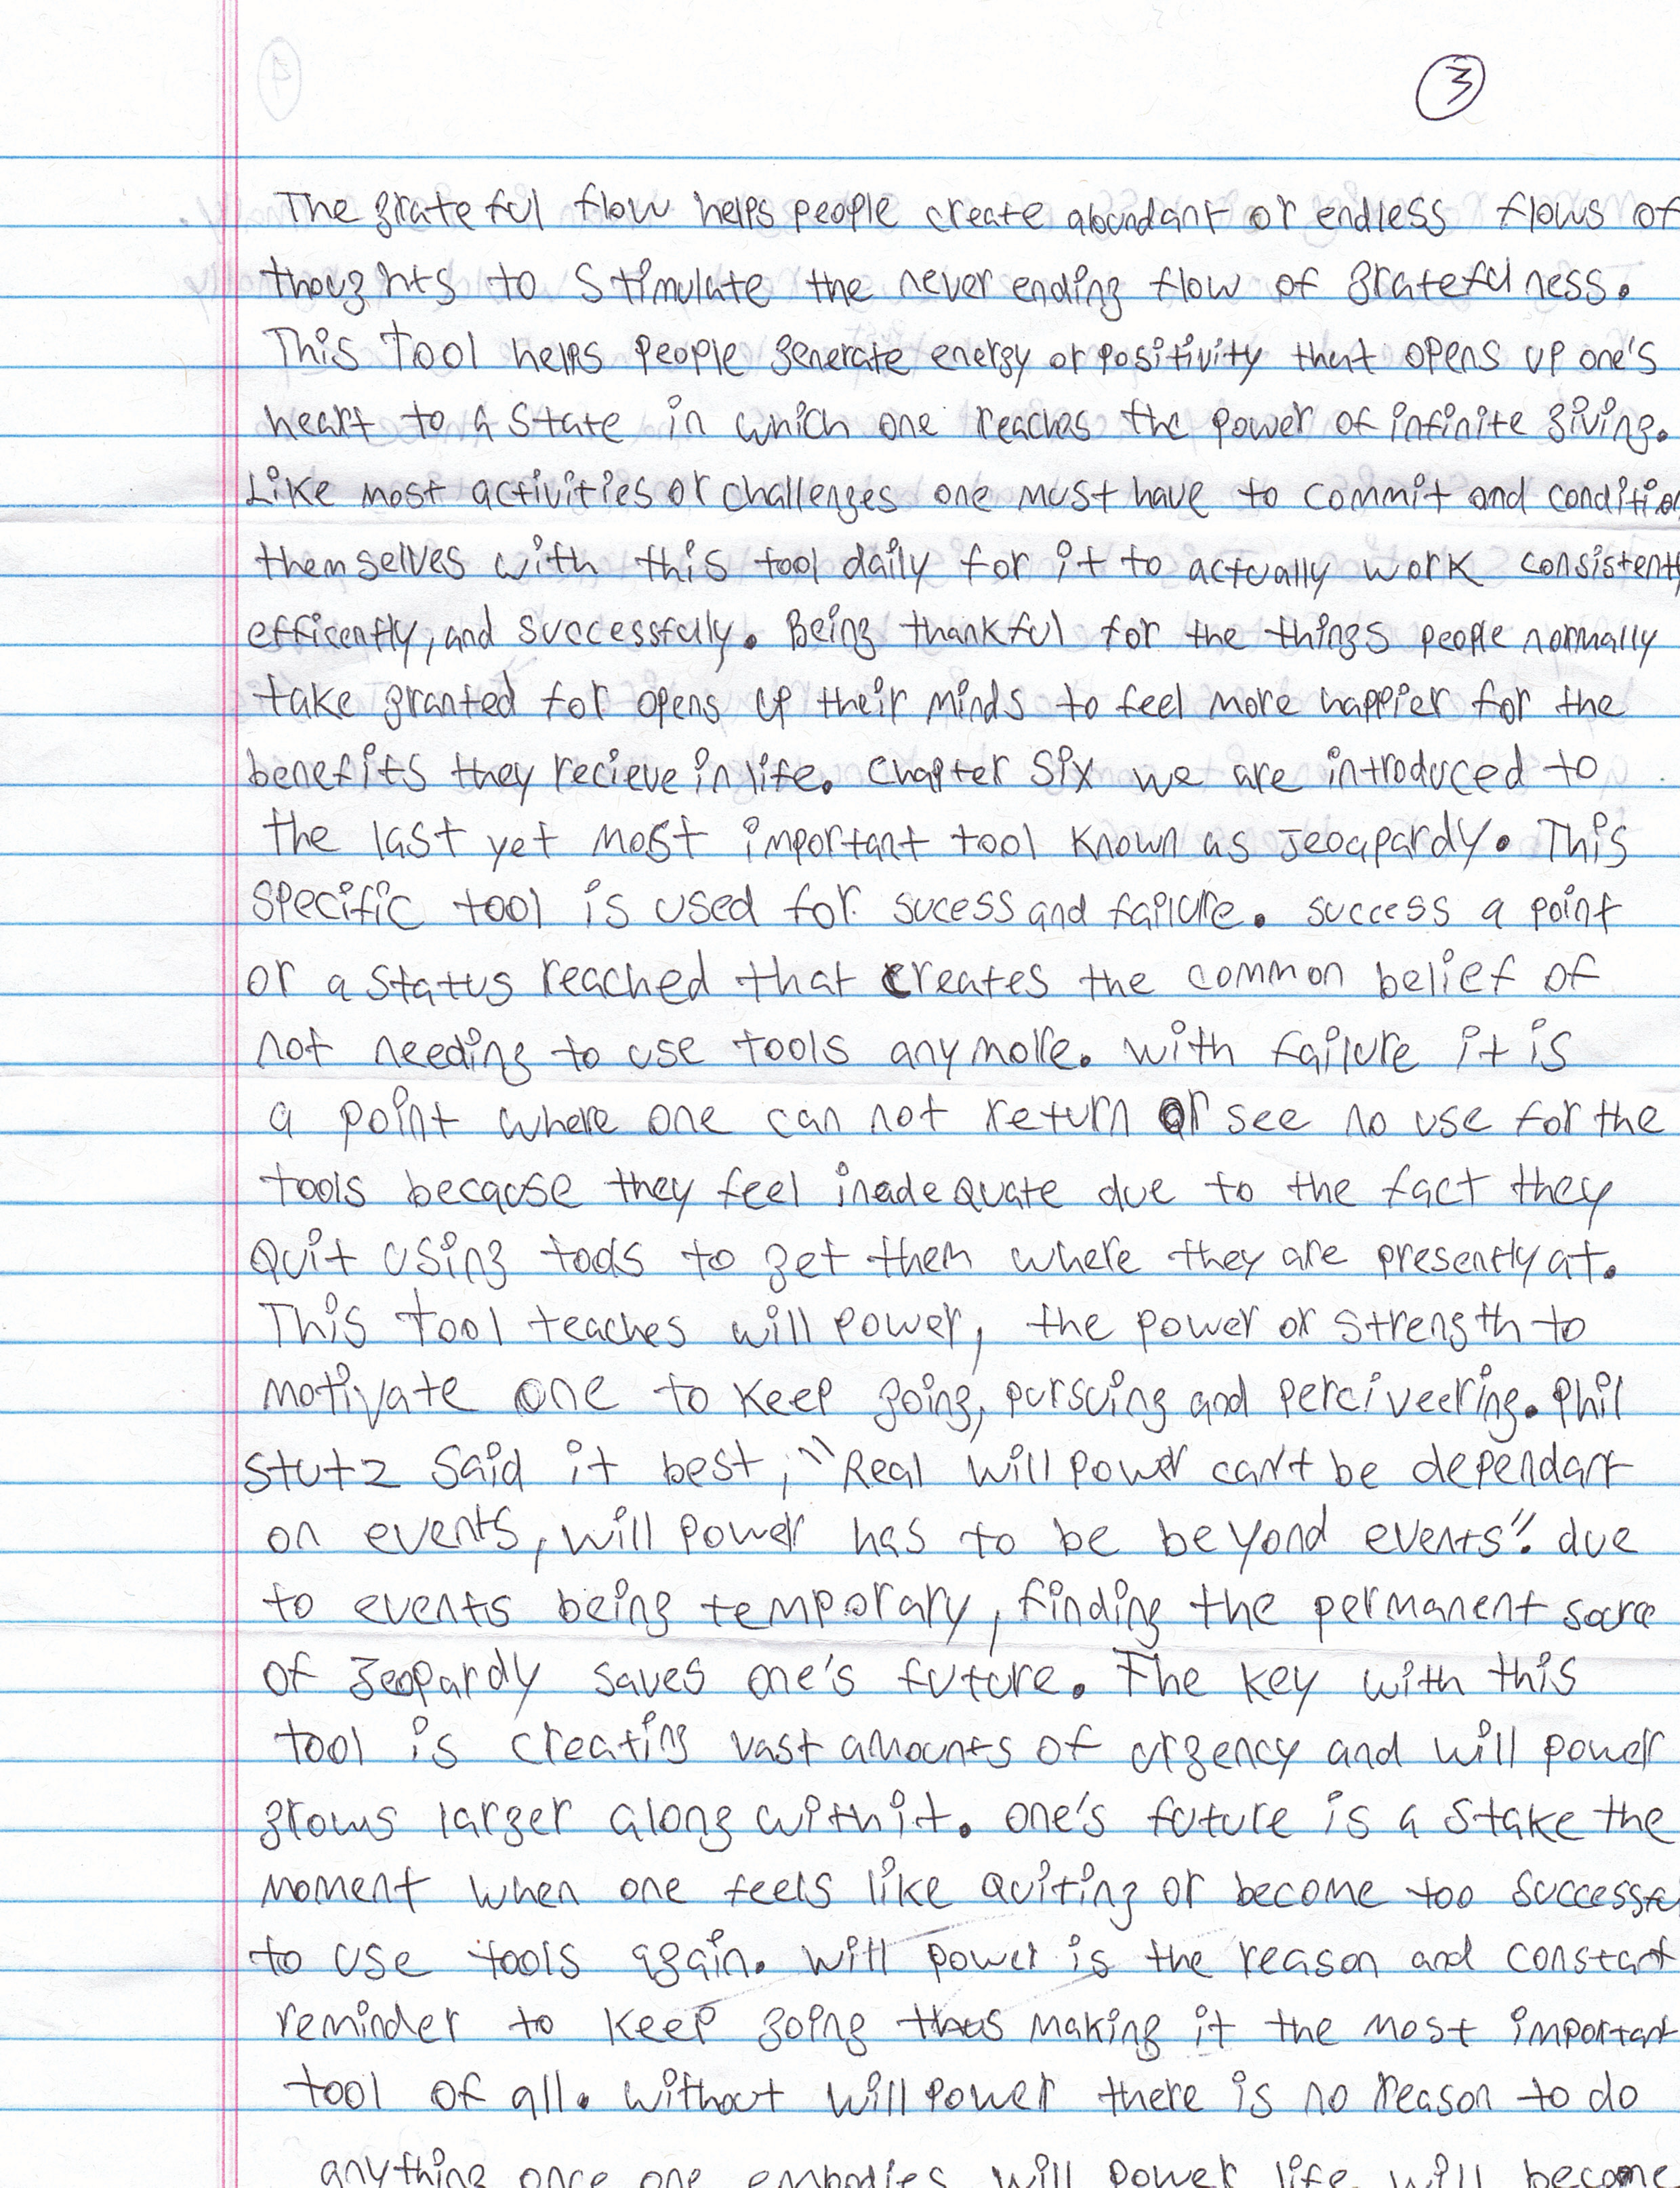 3
The grateful flow helps people create abundant or endless flows of
thoughts to stimulate the never ending flow of gratefulness.
This tool helps people generate energy or positivity that opens up one's
heart to a state in which one reaches the power of infinite giving.
Like most activities or challenges one must have to commit and condition
themselves with this tool daily for it to actually work consistently
efficently, and successfully. Being thankful for the things people normally
take granted for opens up their minds to feel more happier for the
benefits they recieve in life. Chapter six we are introduced to
the last yet most important tool known as Jeoapardy. This
specific tool is used for sucess and failure. success a point
or a status reached that creates the common belief of
not needing to use tools anymore. with failure it is
a point where one can not return or see no use for the
tools because they feel inadequate due to the fact they
quit using tools to get them where they are presently at.
This tool teaches will power, the power or strength to
motivate one to keep going, pursuing and perciveering. Phil
Stutz said it best, "Real will power can't be dependant
on events, will power has to be beyond events". due
to events being temporary, finding the permanent source
of Jeopardy saves one's future. The key with this
tool is creating vast amounts of urgency and will power
grows larger along with it. one's future is a stake the
moment when one feels like quiting or become too successful
to use tools again. will power is the reason and constant
reminder to keep going thus making it the most important
tool of all. without will power there is no reason to do
anything once one embodies will power life will become